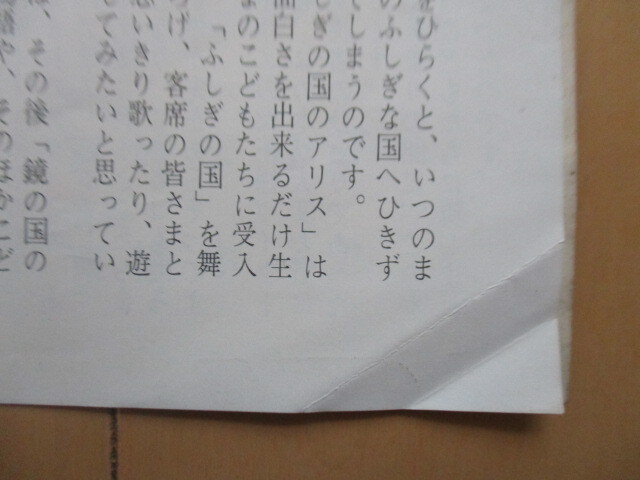 をひらくと、いつのま
のふしぎな国へひきず
てしまうのです。
しぎの国のアリス」は
面白さを出来るだけ生
のこどもたちに受入
「ふしぎの国」を舞
げ、客席の皆さまと
思いきり歌ったり、遊
てみたいと思ってい
、その後「鏡の国の
や、そのほかこど